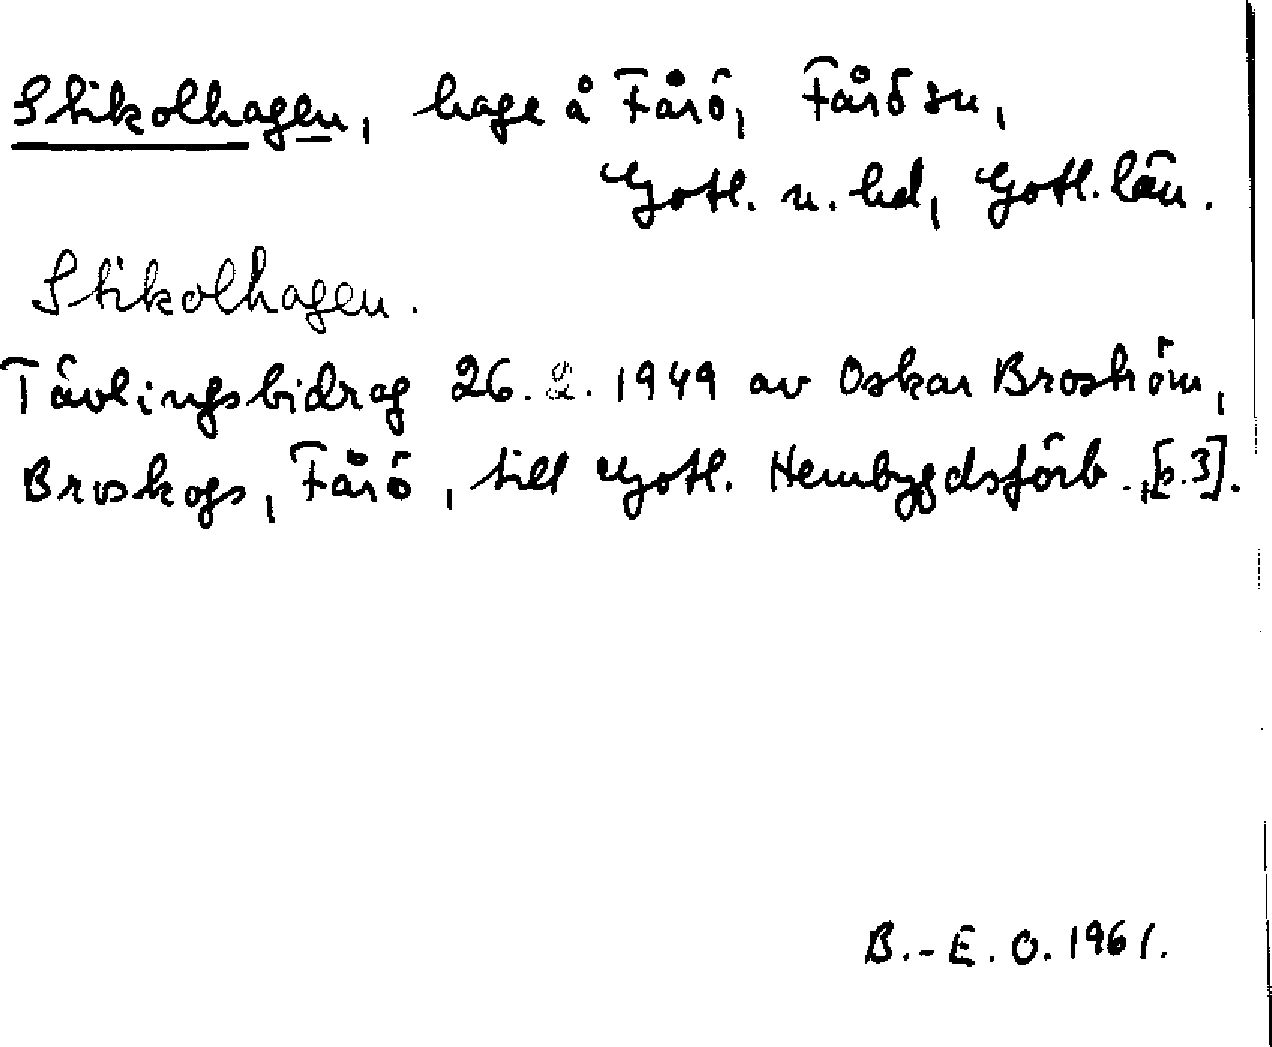 Stikolhagen, hage å Fårö, Fårö sn,
Gotl. n. hd, Gotl. län.
Stikolhagen.
Tävlingsbidrag 26. 2. 1949 av Oskar Broström,
Broskogs, Fårö, till Gotl. Hembygdsförb., [p. 3].
B.-E. O. 1961.